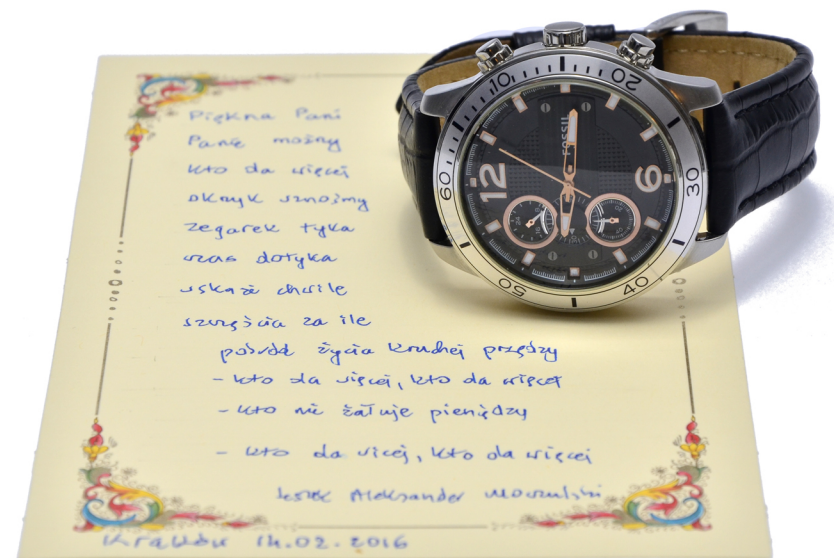 Piękna Pani
Panie możny
kto da więcej
okrzyk wznośmy
zegarek tyka
czas dotyka
wskaże chwile
szczęścia za ile
pośród życia kruchej przędzy
- kto da więcej, kto da więcej
- kto nie żałuje pieniędzy
- kto da więcej, kto da więcej
Leszek Aleksander Moczulski
Kraków 14.02.2016
FOSSIL
10
20
30
40
50
60
12
6